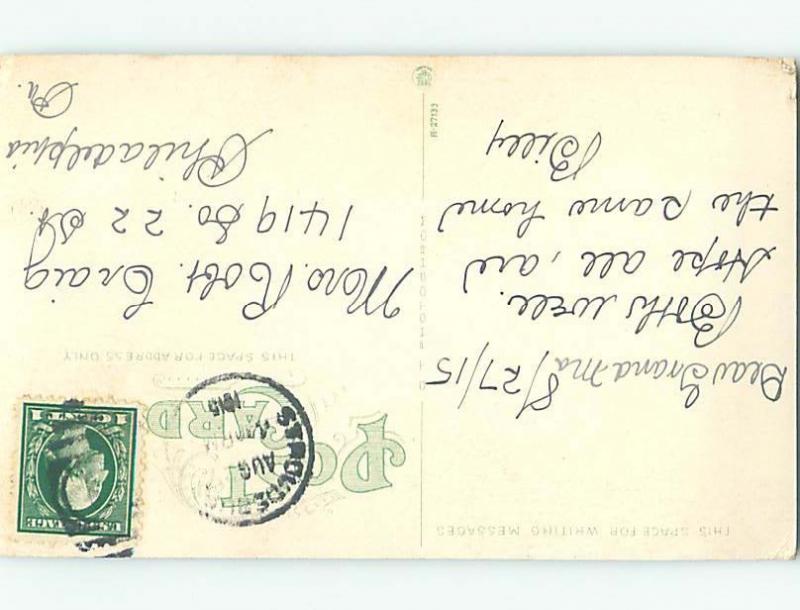 THIS SPACE FOR WRITING MESSAGES
8/27/15
Dear Grand Ma
Both well.
Hope all, are
the same home
Billy
R-27133
POST CARD
THIS SPACE FOR ADDRESS ONLY
AUG
1915
U.S. POSTAGE
1 CENT 1
Mrs. Robt. Craig
1419 So. 22 St.
Philadelphia
Pa.